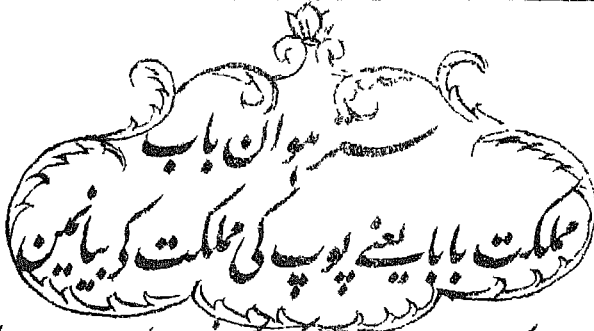 سترہوان باب
مملکت بابا یعنے پوپ کی مملکت کی بیانمین